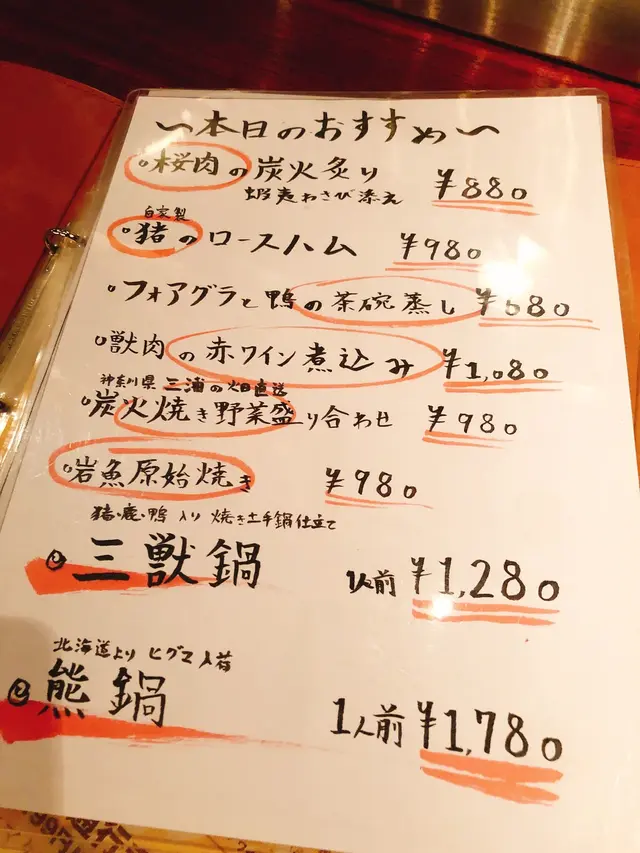 〜本日のおすすめ〜
桜肉の炭火炙り ¥880
蝦夷わさび添え
自家製
猪のロースハム ¥980
フォアグラと鴨の茶碗蒸し ¥680
獣肉の赤ワイン煮込み ¥1,080
神奈川県 三浦の畑直送
炭火焼き野菜盛り合わせ ¥980
岩魚原始焼き ¥980
猪・鹿・鴨 入り 焼き土手鍋仕立て
三獣鍋 1人前 ¥1,280
北海道より ヒグマ入荷
熊鍋 1人前 ¥1,780